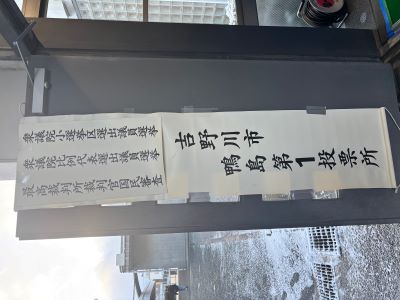 衆議院小選挙区選出議員選挙
衆議院比例代表選出議員選挙
最高裁判所裁判官国民審査
吉野川市
鴨島第1投票所